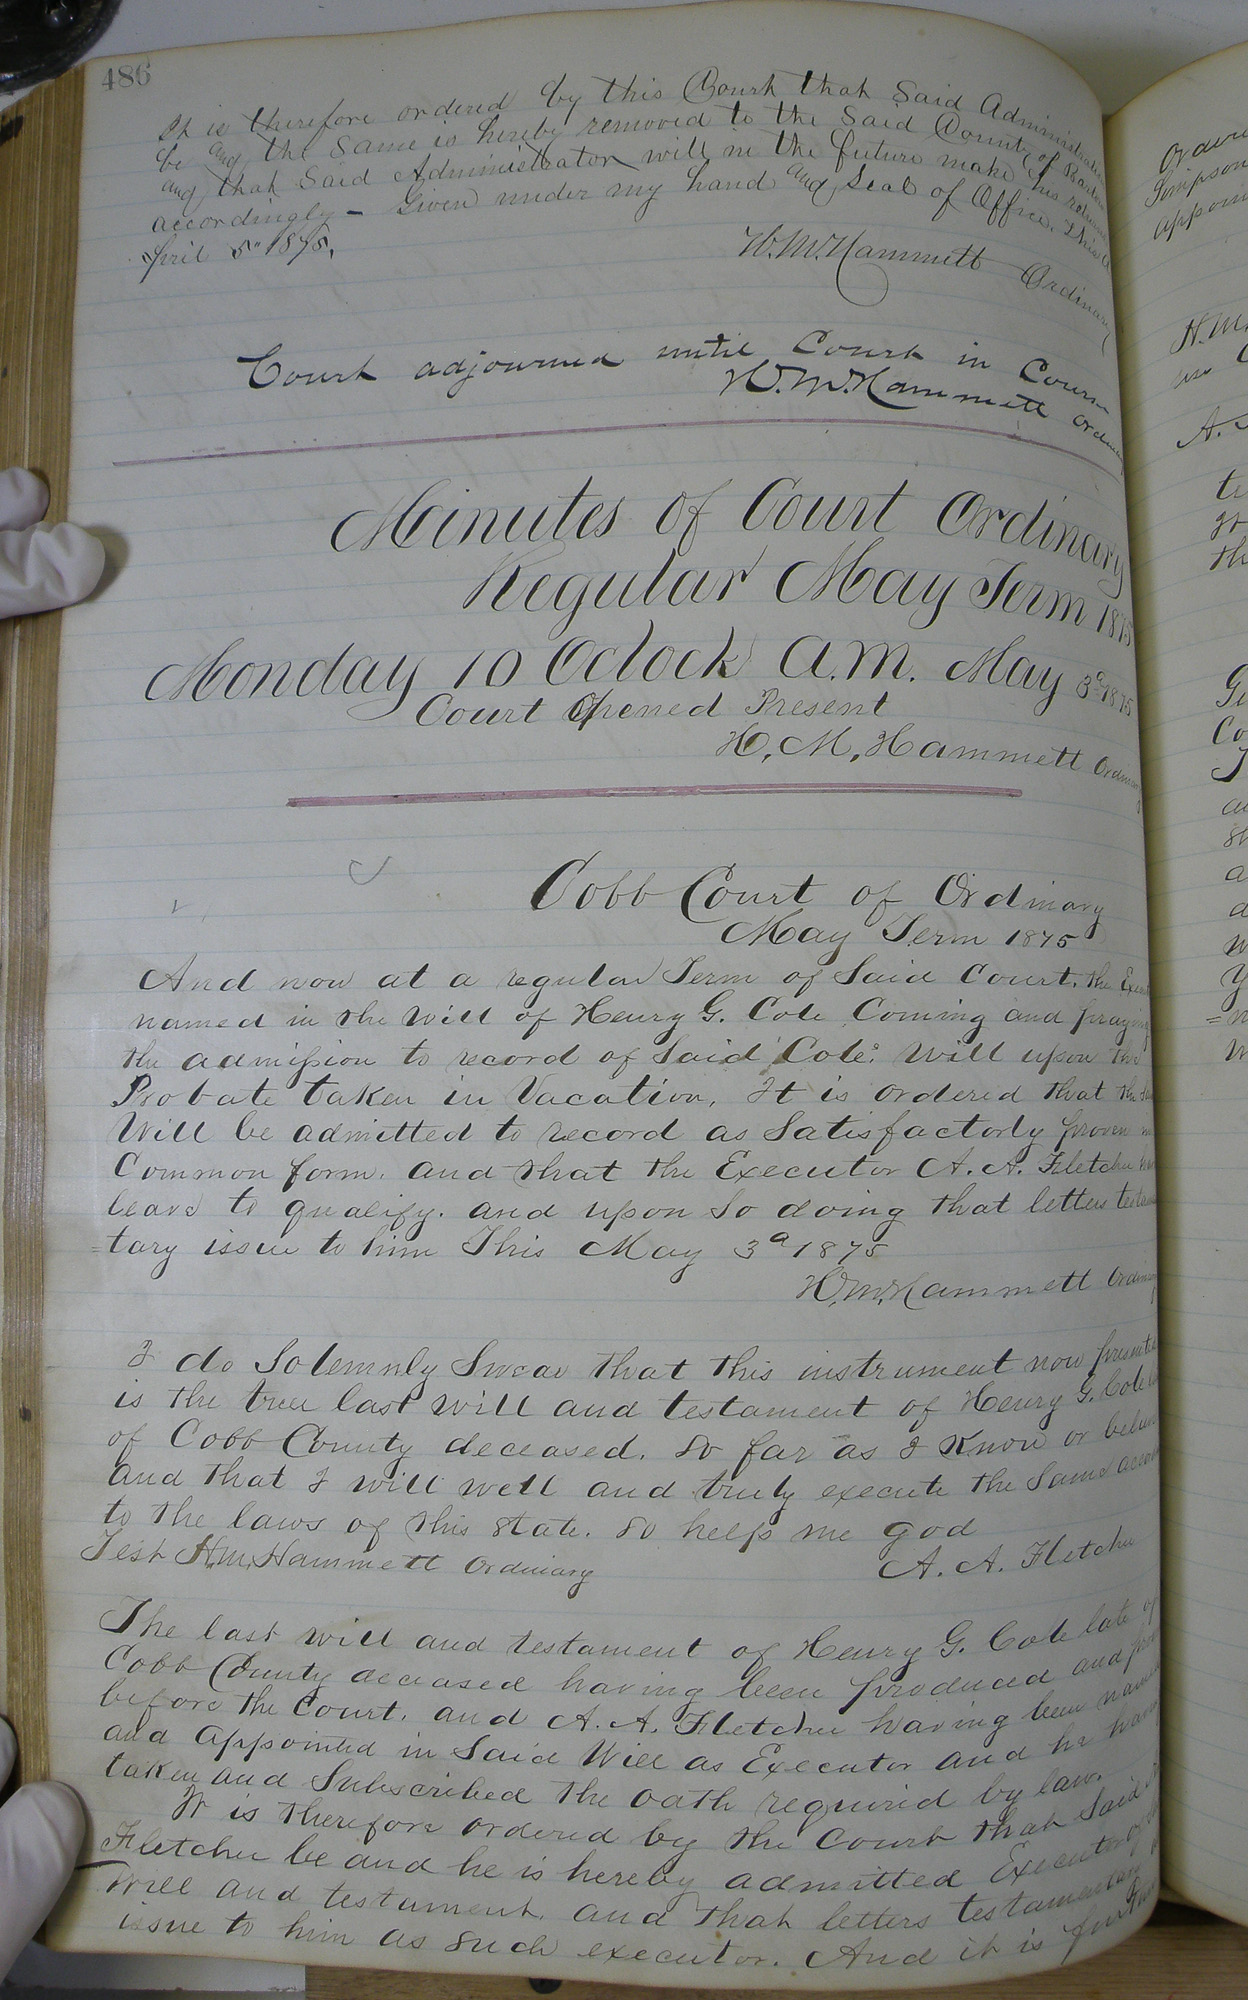 486
It is therefore ordered by this Court that Said Administration
be and the Same is hereby removed to the Said County of
and that Said Administrator will in the future make his returns
accordingly - Given under my hand and Seal of Office this
April 5" 1875.
H. M. Hammett Ordinary
Court adjourned until Court in Course
H. M. Hammett Ordinary
Minutes of Court Ordinary
Regular May Term 1875
Monday 10 Oclock A.M. May 3d 1875
Court Opened Present
H. M. Hammett Ordinary
Cobb Court of Ordinary
May Term 1875
And now at a regular Term of Said Court. the
named in the Will of Henry G. Cole Coming and praying
the admission to record of Said Coles Will upon the
Probate taken in Vacation, It is ordered that the
Will be admitted to record as Satisfactorly proven in
Common form. and that the Executor A. A. Fletcher have
leave to qualify. and upon So doing that letters testamen
=tary issue to him This May 3d 1875
H. M. Hammett Ordinary
I do Solemnly Swear that this instrument now presented
is the true last will and testament of Henry G. Cole
of Cobb County deceased. So far as I Know or believe
and that I will well and truly execute the Same
to the laws of this State. So help me God
Test H. M. Hammett Ordinary
A. A. Fletcher
The last will and testament of Henry G. Cole late of
Cobb County deceased having been produced and
before the Court. and A. A. Fletcher having been named
and Appointed in Said Will as Executor and he having
taken and Subscribed the oath required by law.
It is therefore ordered by the Court that Said
Fletcher be and he is hereby admitted Executor of
Will and testament. and that letters testamentary
issue to him as Such executor. And it is further